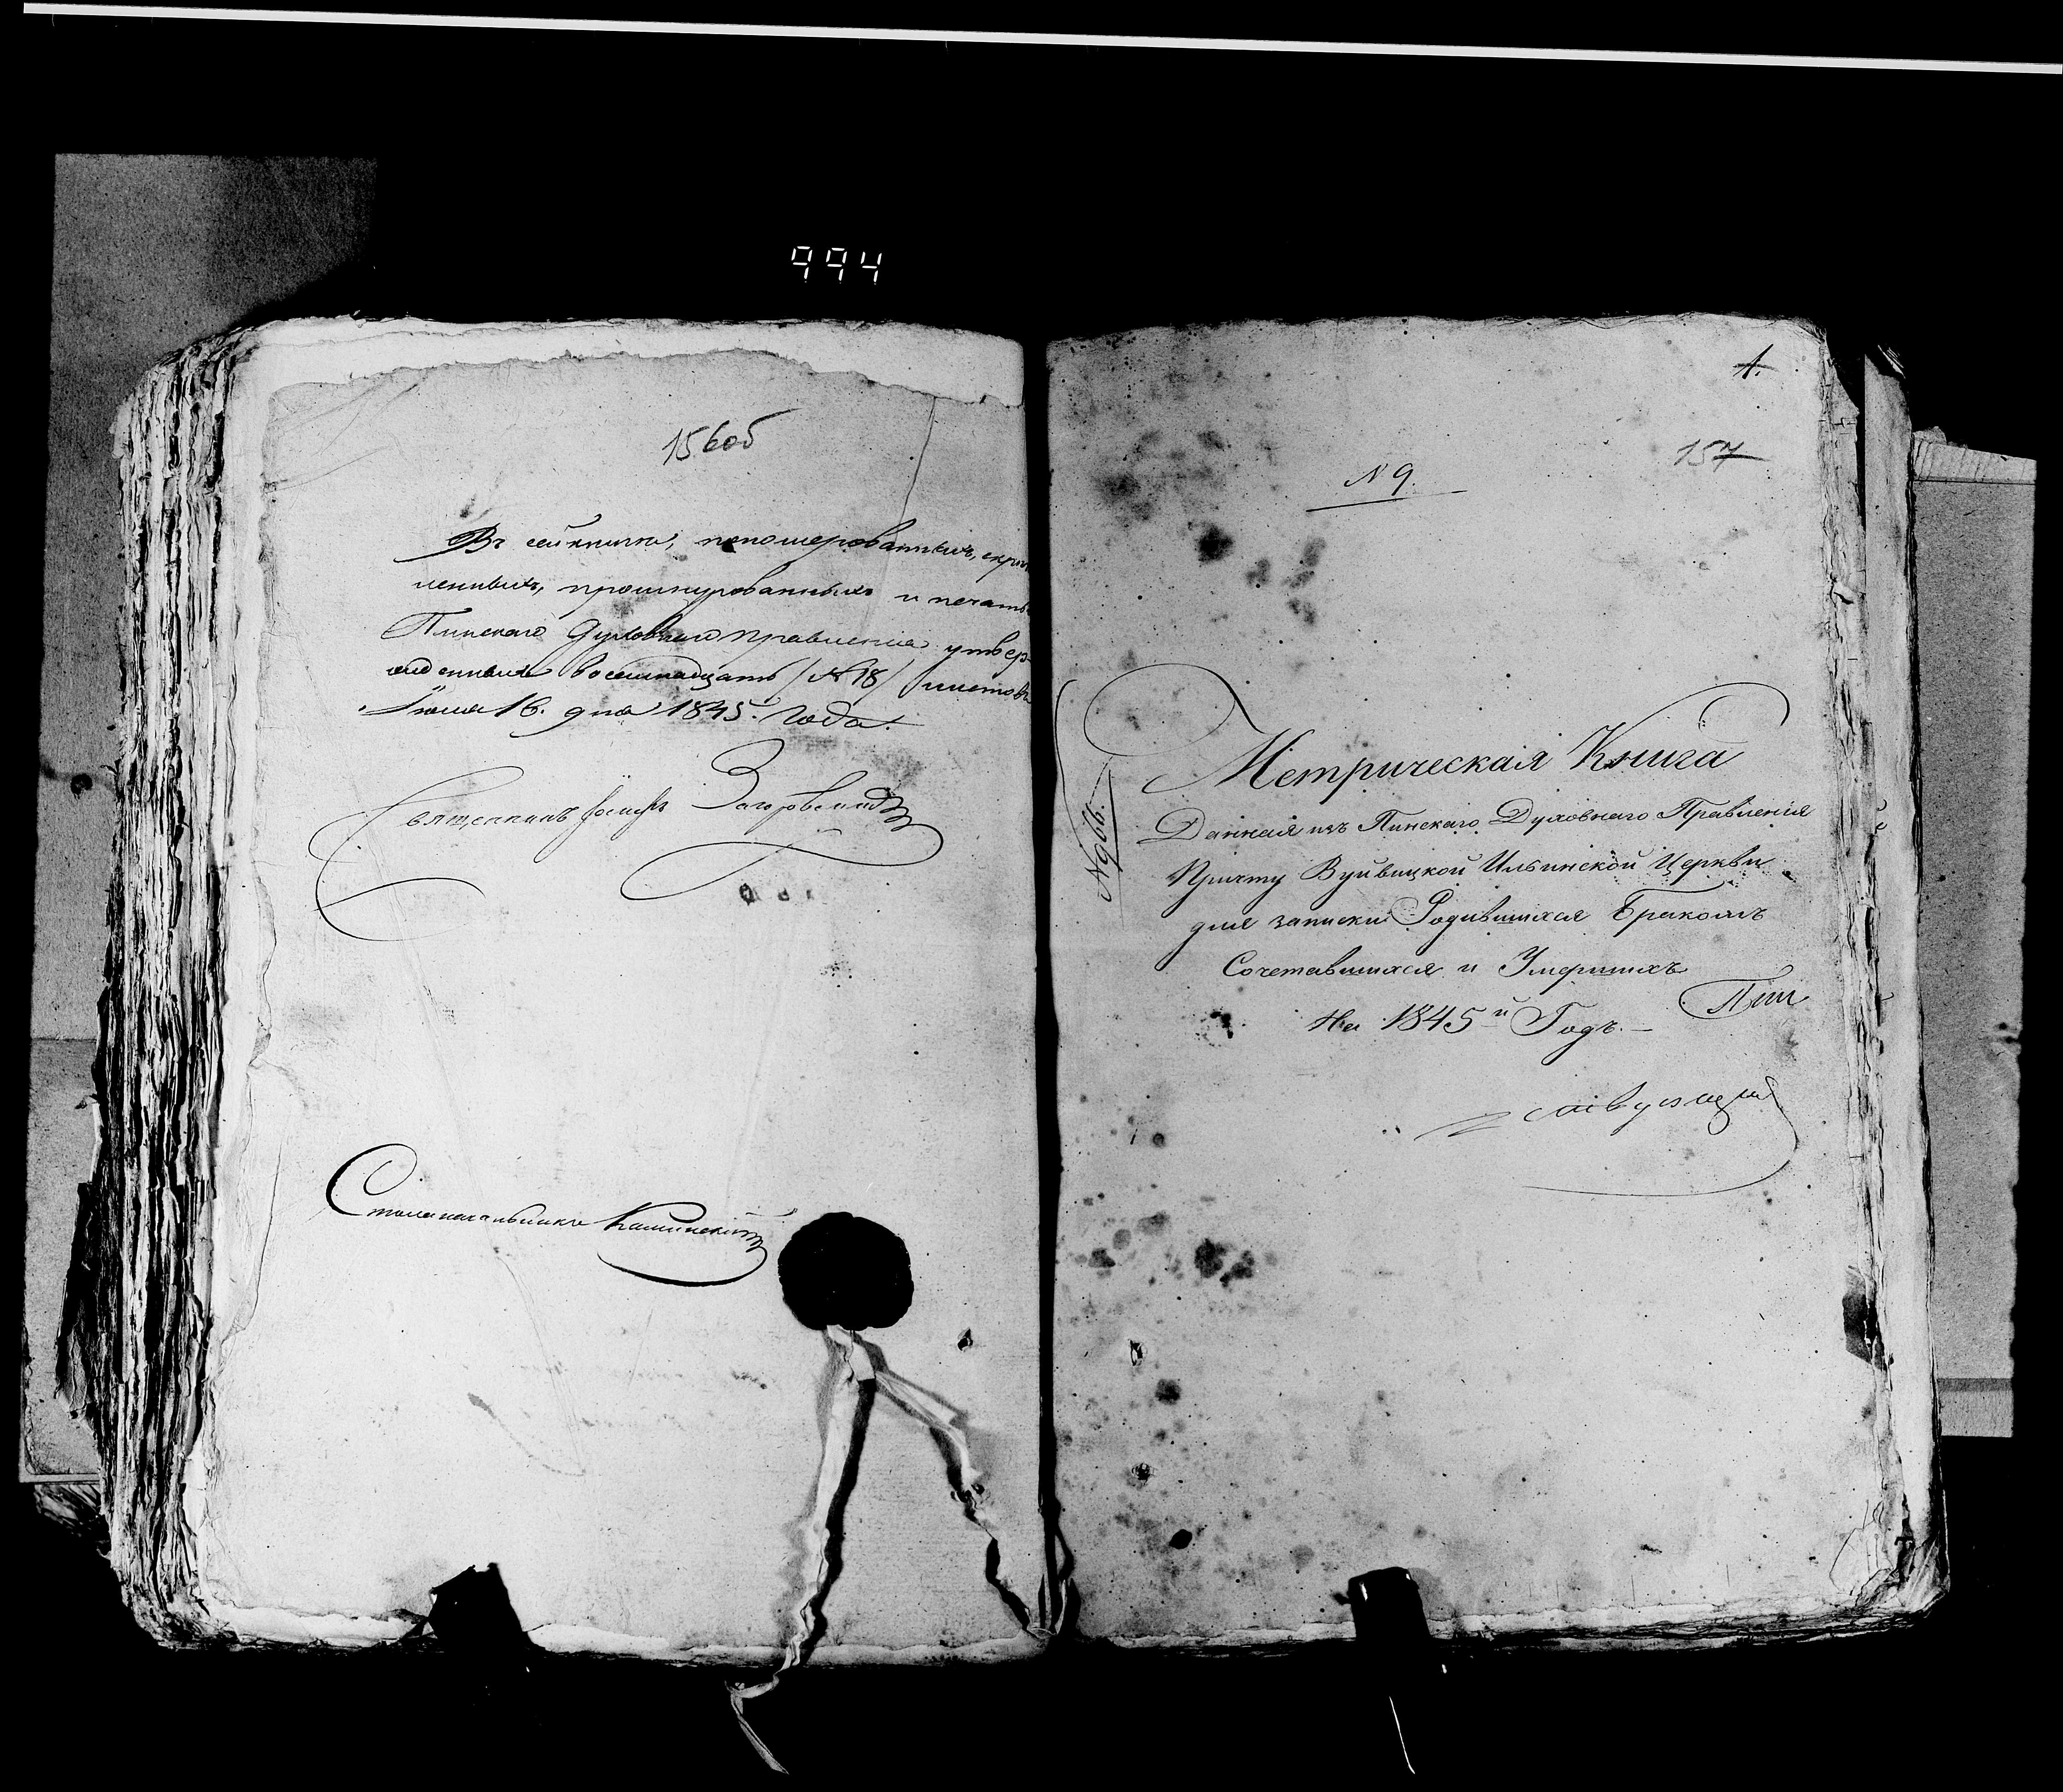 994
156об
Въ сей книге, пономерованныхъ, скреп
ленныхъ, прошнурованныхъ и печатью
Пинскаго Духовнаго Правления утвер-
жденныхъ восемнадцать /№ 18/ листовъ
16. дня 1845. Года.
Священникъ Іосифъ Загоровский
Столоначальникъ Каминский
1.
157
№ 9.
№ 966.
Метрическая Книга
Данная изъ Пинскаго Духовнаго Правления
Причту Вуйвицкой Ильинской Церкви
для записки Родившихся Бракомъ
Сочетавшихся и Умершихъ
На 1845й Годъ.